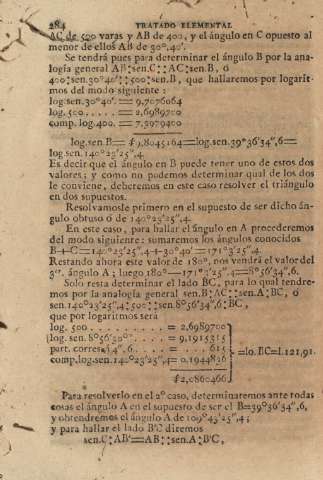 284 TRATADO ELEMENTAL
AC de 500 varas y AB de 400, y el ángulo en C opuesto al
menor de ellos AB de 30º,40'.
Se tendrá pues para determinar el ángulo B por la ana-
logía general AB:sen.C::AC:sen.B, ó
400:sen.30º40'::500:sen.B, que hallaremos por logarit-
mos del modo siguiente:
log.sen.30º40'. = 9,7076064
log. 500. . . . . = 2,6989700
comp. log.400. = 7,3979400
log.sen.B = 9,8045164=log.sen.39º36'34",6=
log.sen.140º23'25",4.
Es decir que el ángulo en B puede tener uno de estos dos
valores; y como no podemos determinar qual de los dos
le conviene, deberemos en este caso resolver el triángulo
en dos supuestos.
Resolvamosle primero en el supuesto de ser dicho án-
gulo obtuso ó de 140º23'25",4.
En este caso, para hallar el ángulo en A procederemos
del modo siguiente: sumaremos los ángulos conocidos
B+C=140º23'25",4+30º40'=171º3'25",4.
Restando ahora este valor de 180º, nos vendrá el valor del
3er. ángulo A; luego 180º—171º3'25",4=8º56'34",6.
Solo resta determinar el lado BC, para lo qual tendre-
mos por la analogía general sen.B:AC::sen.A:BC, ó
sen.140º23'25",4:500::sen.8º56'34",6:BC,
que por logaritmos será
log. 500 . . . . . . . . . = 2,6989700
log. sen. 8º56'30". . . . . = 9,1915315
part. corres. 4",6. . . . . = 615
comp.log.sen.140º23'25",4= 0,1944836
=lo.BC=l.121,91.
2,0860466
Para resolverlo en el 2º caso, determinaremos ante todas
cosas el ángulo A en el supuesto de ser el B=39º36'34",6,
y obtendremos el ángulo A de 109º43'25",4;
y para hallar el lado B'C diremos
sen.C:AB'=AB::sen.A:B'C,